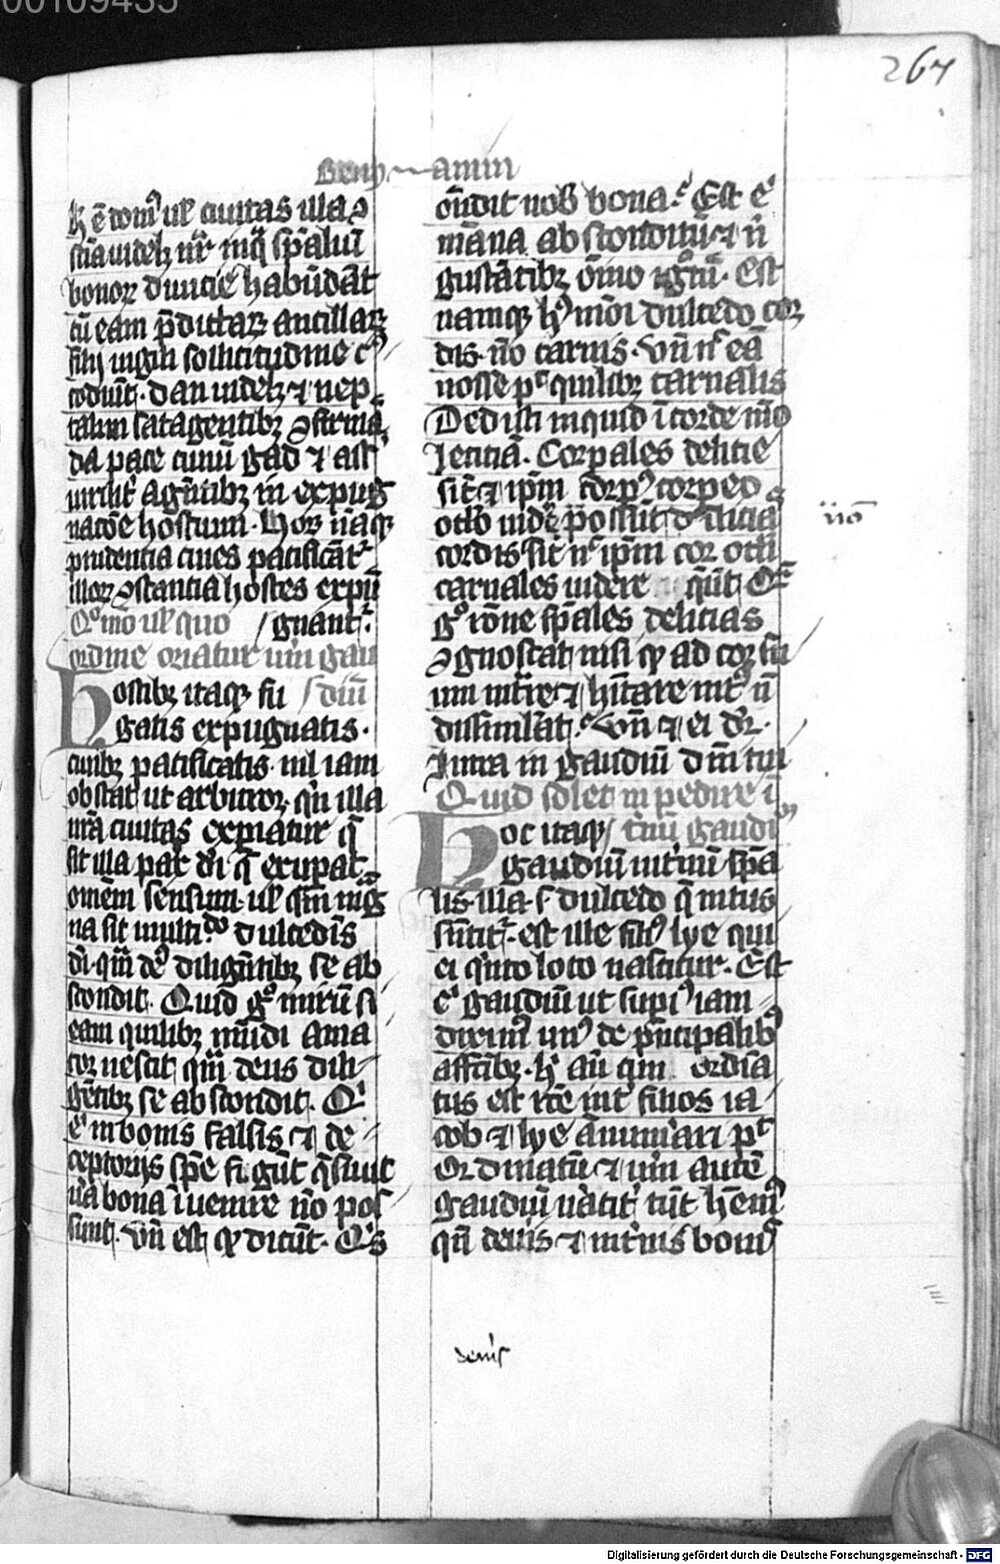 00109435
267
Beniamin
h̄ ē domꝰ ul̄ ciuitas illa ↄ
scīa uidelꝫ nr̄ inq̄ sp̄aliū
bonoꝝ diuicie habūdāt
cū eam p̄dictaꝝ ancillaꝝ
filij uigili sollicitudine cꝰ
todiūt. dan uidelꝫ ⁊ nep
talim satagentibꝫ ↄfirmā
da pace ciuiū gad ⁊ asſ
uiriliť agētibꝫ in expug
nacōe hostium. Hoꝝ nāqꝫ
prudentia ciues pacificāt᷑
illoꝝ ↄstantia hostes expu
Qᵒmō ul̄ quo gnant᷑.
ordine oriatur um̄ gau
Hostibꝫ itaqꝫ fu diū
gatis expugnatis.
ciuibꝫ pacificatis. nil iam
obstat ut arbitror, qn̄ illa
nr̄a ciuitas expiatur q̄
sit illa pax dī q̄ exupat
omēm sensum. ul̄ qm̄ mag
na sit multi.do dulcedīs
dī. qm̄ deꝰ diligētibꝫ se ab
scondit. Quid gͦ mirū si
eam quilibꝫ mūdi ama
tor nescit, qm̄ deus dili
gētibꝫ se abscondit. Qͥ
eͥ in bonis falsis ⁊ de
ceptorijs spē figūt q̄ sūt
ūa bona īuenire nō pos
sunt. vn̄ est qꝫ dicūt. Qͥs
ōndit nob̄ bona. Est eͥ
māna absconditū ⁊ n̄
gustātibꝫ om̄ino ignm̄. Est
namqꝫ hꝰmōi dulcedo cor
dis. nō carnis. vn̄ n̄ eā
nosse pt̄ quilibꝫ carnalis
Dedisti inquid ī corde mō
leticiā. Corpales delicie
sic̄ ⁊ ipm̄ corpꝰ corpeo
oclo uideri possūt delicias
cordis sic̄ n̄ ipm̄ cor ocli
carnales uidere qūt. Qr̄
gͦ rōne sp̄ales delicias
ↄgnoscat, nisi qꝫ ad cor su
um int̄re ⁊ hītare intꝰ n̄
dissimilat. vn̄ ⁊ ei dr̄.
Intra in gaudiū dn̄i tui
Quid solet inpedire ī
Hoc itaqꝫ t̄nū gaudiū
gaudiū int̄nū sp̄a
lis illa. s. dulcedo q̄ intus
sentit᷑. est ille filiꝰ lye qui
ei qͥnto loco nascitur. Est
eͥ gaudiū ut supiꝰ iam
diximꝰ unꝰ de pͥncipalibꝰ
affectibꝫ. hͥ aū qm̄ ordīa
tus est rc̄e int̄ filios ia
cob ⁊ lye ānumerari pt̄
Ordinatū ⁊ um̄ autē
gaudiū ūacit᷑ tūc hēmꝰ
qn̄ de ūis ⁊ int̄nis bonis
nō
deuis
Digitalisierung gefördert durch die Deutsche Forschungsgemeinschaft - DFG